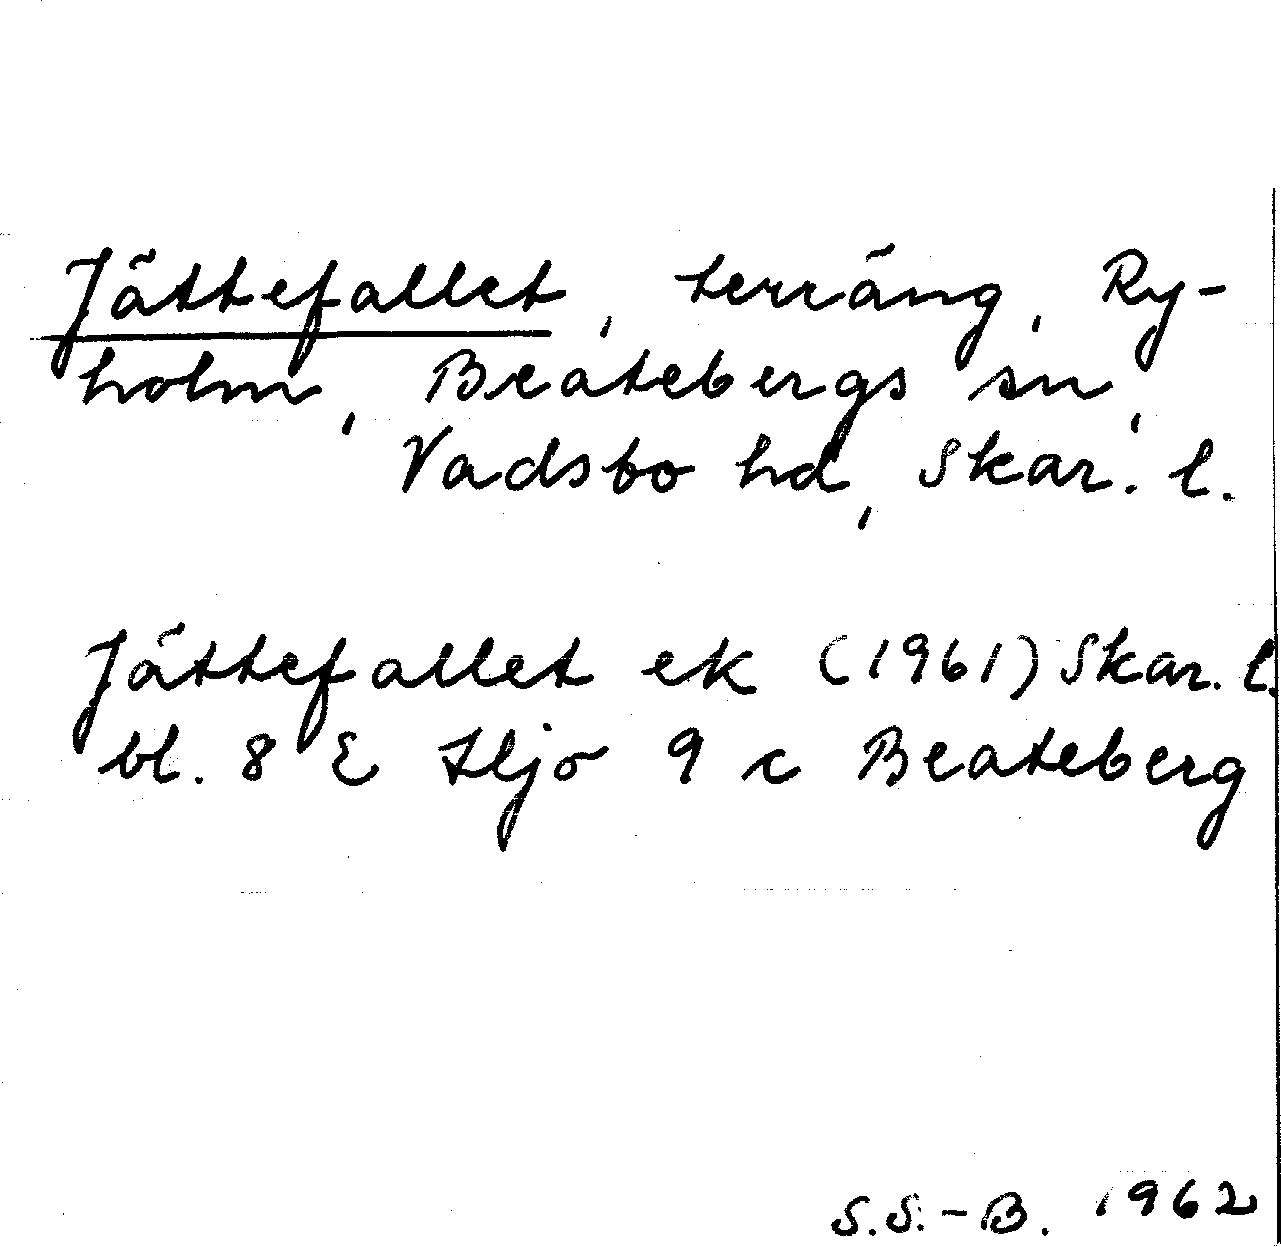 Jättefallet, terräng, Ry-
holm, Beatebergs sn,
Vadsbo hd, Skar. l.
Jättefallet ek (1961) Skar. l.
bl. 8 E Hjo 9 c Beateberg
S.S.-B. 1962